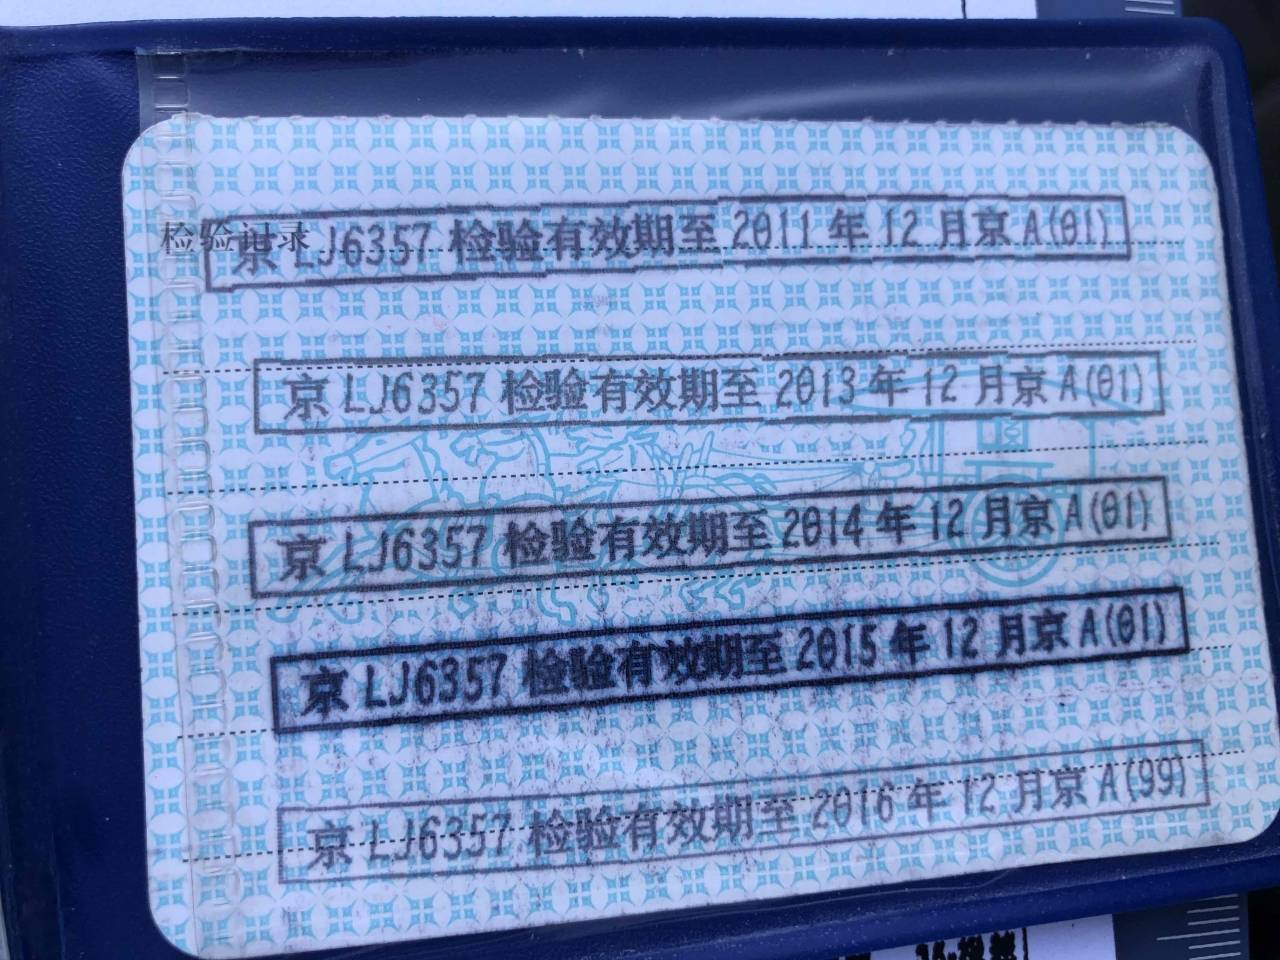 检验记录
京 LJ6357 检验有效期至 2011 年 12 月京 A(01)
京 LJ6357 检验有效期至 2013 年 12 月京 A(01)
京 LJ6357 检验有效期至 2014 年 12 月京 A(01)
京 LJ6357 检验有效期至 2015 年 12 月京 A(01)
京 LJ6357 检验有效期至 2016 年 12 月京 A(99)